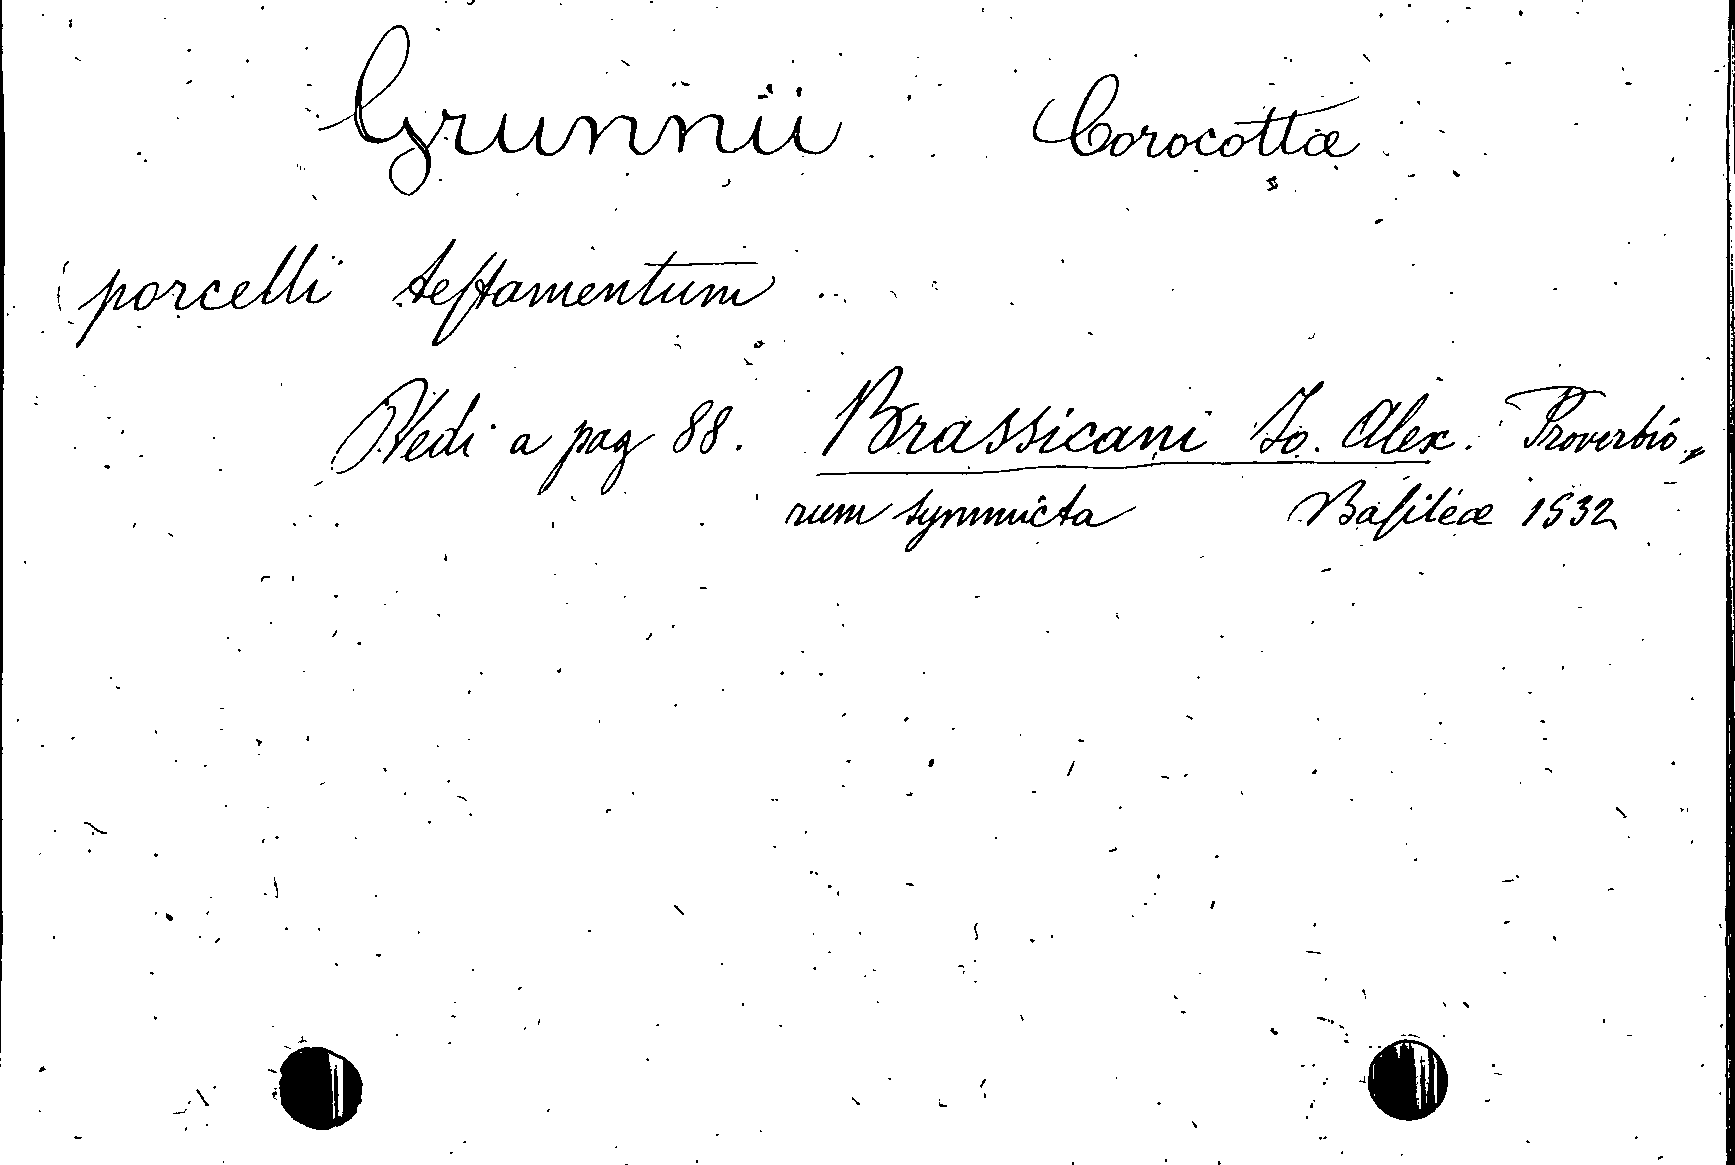 Grunnii Corocottæ
porcelli teſtamentum
Vedi a pag 88. Brassicani Io. Alex. Proverbio„
rum symmicta Baſileæ 1532